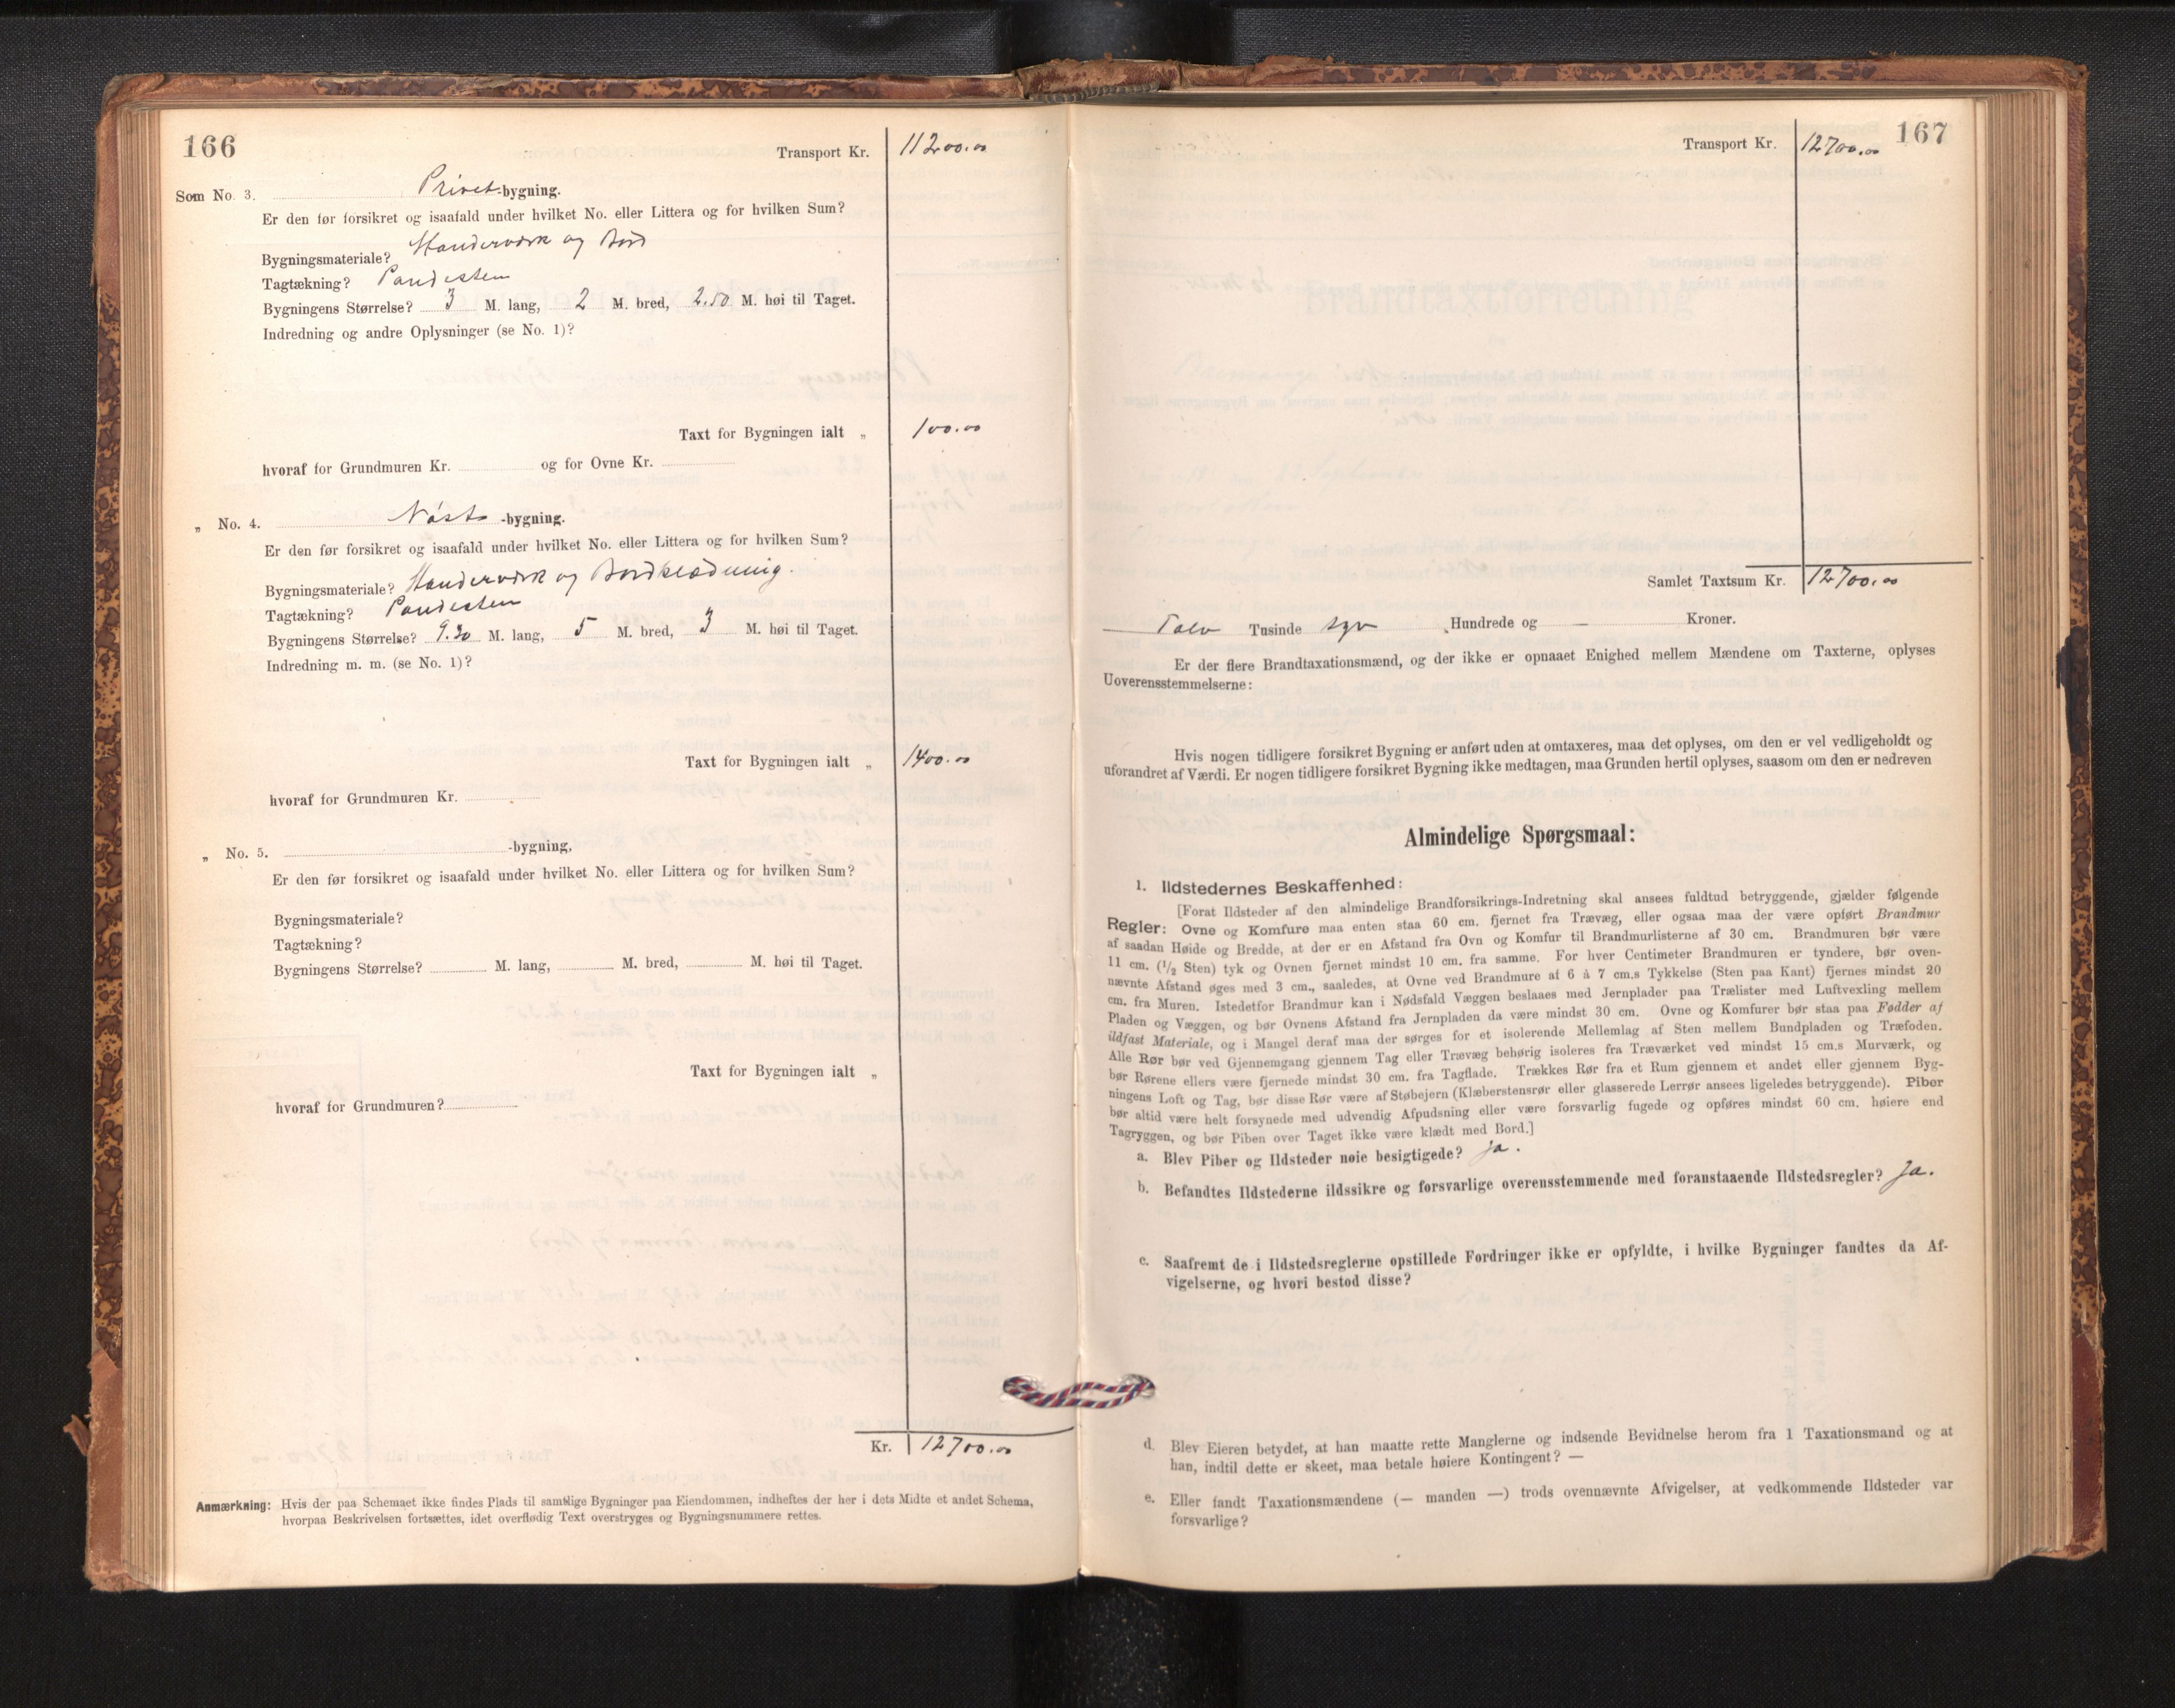 166
Transport Kr. 11200.00
Som No. 3. Privet-bygning.
Er den før forsikret og isaafald under hvilket No. eller Littera og for hvilken Sum?
Bygningsmateriale? Standerværk og Bord
Tagtækning? Pandesten
Bygningens Størrelse? 3 M. lang, 2 M. bred, 2.50 M. høi til Taget.
Indredning og andre Oplysninger (se No. 1)?
Taxt for Bygningen ialt „ 100.00
hvoraf for Grundmuren Kr. og for Ovne Kr.
„ No. 4. Nøst-bygning.
Er den før forsikret og isaafald under hvilket No. eller Littera og for hvilken Sum?
Bygningsmateriale? Standerværk og Bordklædning.
Tagtækning? Pandesten
Bygningens Størrelse? 9.30 M. lang, 5 M. bred, 3 M. høi til Taget.
Indredning m. m. (se No. 1)?
Taxt for Bygningen ialt „ 1400.00
hvoraf for Grundmuren Kr.
„ No. 5. -bygning,
Er den før forsikret og isaafald under hvilket No. eller Littera og for hvilken Sum?
Bygningsmateriale?
Tagtækning?
Bygningens Størrelse? M. lang, M. bred, M. høi til Taget.
Taxt for Bygningen ialt „
hvoraf for Grundmuren?
Kr. 12700.00
Anmærkning: Hvis der paa Schemaet ikke findes Plads til samtlige Bygninger paa Eiendommen, indheftes der her i dets Midte et andet Schema,
hvorpaa Beskrivelsen fortsættes, idet overflødig Text overstryges og Bygningsnummere rettes.
167
Transport Kr. 12700.00
Samlet Taxtsum Kr. 12700.00
Tolv Tusinde syv Hundrede og — Kroner.
Er der flere Brandtaxationsmænd, og der ikke er opnaaet Enighed mellem Mændene om Taxterne, oplyses
Uoverensstemmelserne:
Hvis nogen tidligere forsikret Bygning er anført uden at omtaxeres, maa det oplyses, om den er vel vedligeholdt og
uforandret af Værdi. Er nogen tidligere forsikret Bygning ikke medtagen, maa Grunden hertil oplyses, saasom om den er nedreven
Almindelige Spørgsmaal:
1. Ildstedernes Beskaffenhed:
[Forat Ildsteder af den almindelige Brandforsikrings-Indretning skal ansees fuldtud betryggende, gjælder følgende
Regler: Ovne og Komfure maa enten staa 60 cm. fjernet fra Trævæg, eller ogsaa maa der være opført Brandmur
af saadan Høide og Bredde, at der er en Afstand fra Ovn og Komfur til Brandmurlisterne af 30 cm. Brandmuren bør være
11 cm. (1/2 Sten) tyk og Ovnen fjernet mindst 10 cm. fra samme. For hver Centimeter Brandmuren er tyndere, bør oven-
nævnte Afstand øges med 3 cm., saaledes, at Ovne ved Brandmure af 6 à 7 cm.s Tykkelse (Sten paa Kant) fjernes mindst 20
cm. fra Muren. Istedetfor Brandmur kan i Nødsfald Væggen beslaaes med Jernplader paa Trælister med Luftvexling mellem
Pladen og Væggen, og bør Ovnens Afstand fra Jernpladen da være mindst 30 cm. Ovne og Komfurer bør staa paa Fødder af
ildfast Materiale, og i Mangel deraf maa der sørges for et isolerende Mellemlag af Sten mellem Bundpladen og Træfoden.
Alle Rør bør ved Gjennemgang gjennem Tag eller Trævæg behørig isoleres fra Træværket ved mindst 15 cm.s Murværk, og
bør Rørene ellers være fjernede mindst 30 cm. fra Tagflade. Trækkes Rør fra et Rum gjennem et andet eller gjennem Byg-
ningens Loft og Tag, bør disse Rør være af Støbejern (Klæberstensrør eller glasserede Lerrør ansees ligeledes betryggende). Piber
bør altid være helt forsynede med udvendig Afpudsning eller være forsvarlig fugede og opføres mindst 60 cm. høiere end
Tagryggen, og bør Piben over Taget ikke være klædt med Bord.]
a. Blev Piber og Ildsteder nøie besigtigede? Ja.
b. Befandtes Ildstederne ildssikre og forsvarlige overensstemmende med foranstaaende Ildstedsregler? Ja.
c. Saafremt de i Ildstedsreglerne opstillede Fordringer ikke er opfyldte, i hvilke Bygninger fandtes da Af-
vigelserne, og hvori bestod disse?
d. Blev Eieren betydet, at han maatte rette Manglerne og indsende Bevidnelse herom fra 1 Taxationsmand og at
han, indtil dette er skeet, maa betale høiere Kontingent? —
e. Eller fandt Taxationsmændene (— manden —) trods ovennævnte Afvigelser, at vedkommende Ildsteder var
forsvarlige?